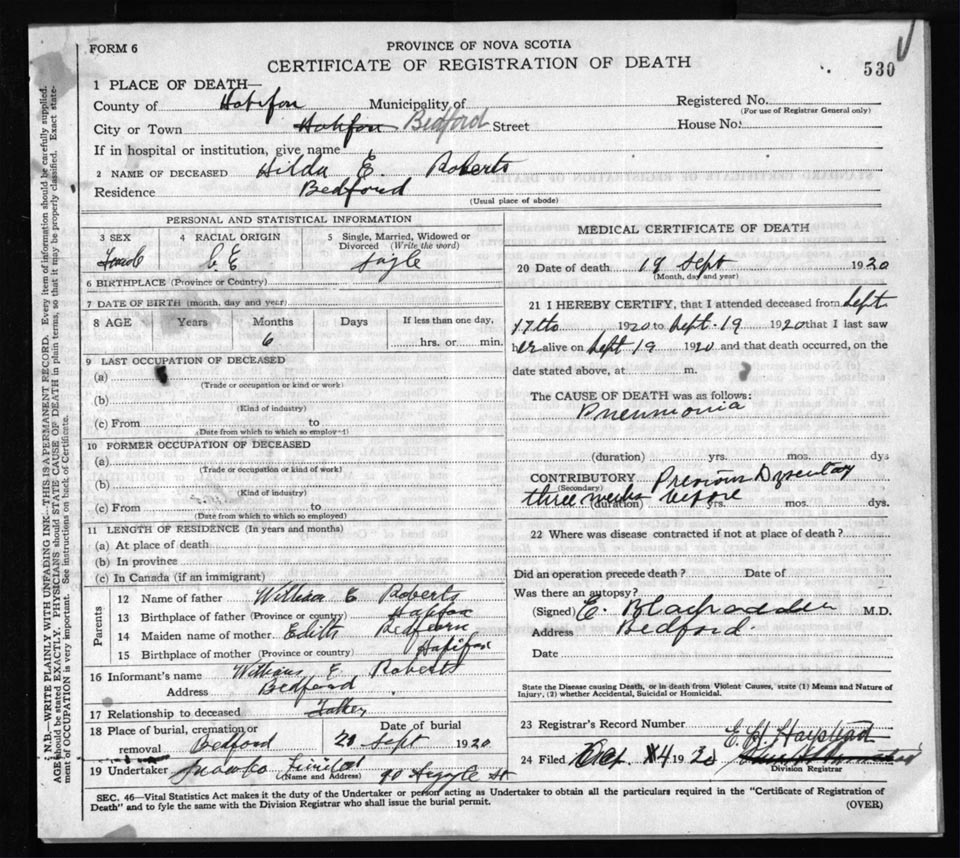 FORM 6
PROVINCE OF NOVA SCOTIA
CERTIFICATE OF REGISTRATION OF DEATH
530
1 PLACE OF DEATH—
County of Halifax Municipality of
Registered No.
(For use of Registrar General only)
City or Town Halifax Bedford Street House No.
If in hospital or institution, give name
2 NAME OF DECEASED Hilda E. Roberts
Residence Bedford
(Usual place of abode)
PERSONAL AND STATISTICAL INFORMATION
3 SEX 4 RACIAL ORIGIN 5 Single, Married, Widowed or
Divorced (Write the word)
Female Single
6 BIRTHPLACE (Province or Country)
7 DATE OF BIRTH (month, day and year)
8 AGE Years Months Days If less than one day,
6 hrs. or min.
9 LAST OCCUPATION OF DECEASED
(a)
(Trade or occupation or kind or work)
(b)
(Kind of industry)
(c) From to
(Date from which to which so employed)
10 FORMER OCCUPATION OF DECEASED
(a)
(Trade or occupation or kind of work)
(b)
(Kind of industry)
(c) From to
(Date from which to which so employed)
11 LENGTH OF RESIDENCE (In years and months)
(a) At place of death
(b) In province
(c) In Canada (if an immigrant)
Parents
12 Name of father William E Roberts
13 Birthplace of father (Province or country) Halifax
14 Maiden name of mother Edith
15 Birthplace of mother (Province or country) Halifax
16 Informant's name William E Roberts
Address Bedford
17 Relationship to deceased Father
18 Place of burial, cremation or Date of burial
removal Bedford 21 Sept 1920
19 Undertaker 90 Argyle St
(Name and Address)
MEDICAL CERTIFICATE OF DEATH
20 Date of death 19 Sept 1920
(Month, day and year)
21 I HEREBY CERTIFY, that I attended deceased from Sept
17th 1920 to Sept. 19 1920 that I last saw
her alive on Sept 19 1920 and that death occurred, on the
date stated above, at m.
The CAUSE OF DEATH was as follows:
Pneumonia
(duration) yrs. mos. dys
CONTRIBUTORY Previous Dysentery
(Secondary)
three weeks before
(duration) yrs. mos. dys.
22 Where was disease contracted if not at place of death?
Did an operation precede death? Date of
Was there an autopsy?
(Signed) E. M.D.
Address Bedford.
Date
State the Disease causing Death, or in death from Violent Causes, state (1) Means and Nature of
Injury, (2) whether Accidental, Suicidal or Homicidal.
23 Registrar's Record Number
24 Filed 19
Division Registrar
SEC. 46—Vital Statistics Act makes it the duty of the Undertaker or person acting as Undertaker to obtain all the particulars required in the "Certificate of Registration of
Death" and to fyle the same with the Division Registrar who shall issue the burial permit.
(OVER)
N.B.—WRITE PLAINLY WITH UNFADING INK—THIS IS A PERMANENT RECORD. Every item of information should be carefully supplied.
AGE should be stated EXACTLY. PHYSICIANS should STATE CAUSE OF DEATH in plain terms, so that it may be properly classified. Exact state-
ment of OCCUPATION is very important. See instructions on back of Certificate.